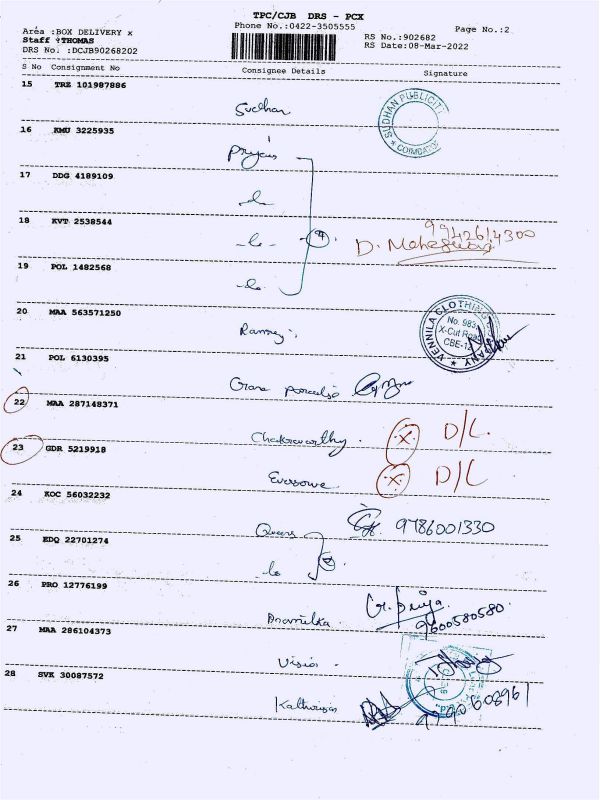 TPC/CJB DRS - PCX
Phone No.:0422-3505555
Page No.:2
Area :BOX DELIVERY x
RS No.:902682
Staff :THOMAS
RS Date:08-Mar-2022
DRS No. :DCJB90268202
S No Consignment No Consignee Details Signature
15 TRZ 101987886
Sudhan
SUDHAN PUBLICIT
* COIMBATOR
16 KMU 3225935
17 DDG 4189109
18 KVT 2538544
9942614300
D. Maheswari
19 POL 1482568
20 MAA 563571250
Ramraj
VENNILA CLOTHING
No. 983,
X-Cut Road
CBE-12
21 POL 6130395
22 MAA 287148371
Chakravarthy. x D/L.
23 GDR 5219918
x D/L
24 KOC 56032232
Queens 9786001330
25 EDQ 22701274
26 PRO 12776199
9600580580
27 MAA 286104373
28 SVK 30087572
9790608961